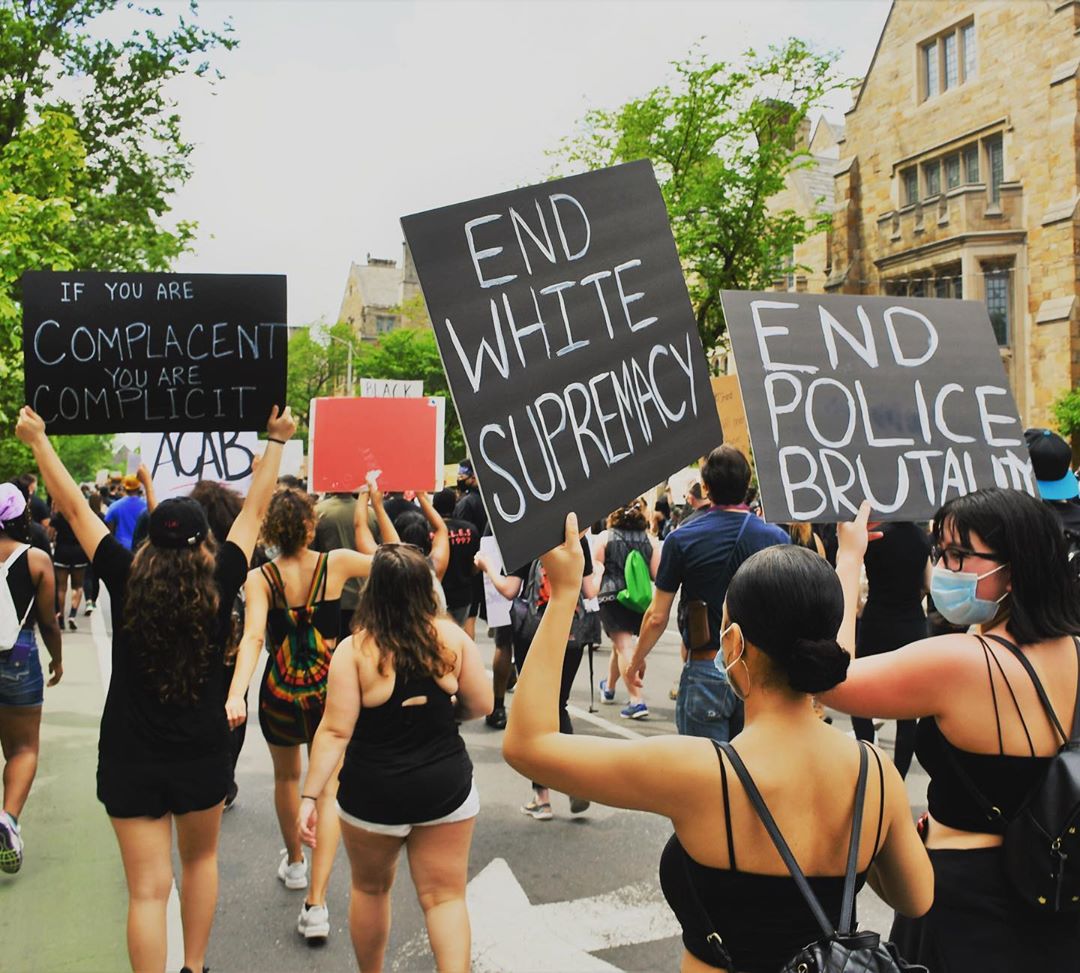 IF YOU ARE
COMPLACENT
YOU ARE
COMPLICIT
ACAB
BLACK
END
WHITE
SUPREMACY
END
POLICE
BRUTALITY
1997